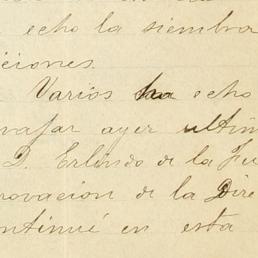 echo la siembra
ciones.
Varios ha echo
vajar ayer ultim
D. Erlindo de la Fu
rovacion de la Dire
ntinué en esta